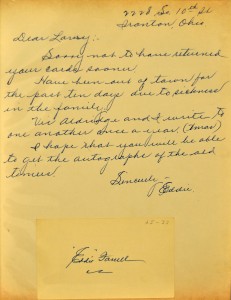 2228 So. 10th St
Ironton, Ohio
Dear Lowry:
Sorry not to have returned
your cards sooner.
Have been out of town for
the past ten days due to sickness
in the family.
Vic Aldridge and I write to
one another once a year. (Xmas)
I hope that you will be able
to get the autographs of the old
timers.
Sincerely,
Eddie
"Eddie" Farrell